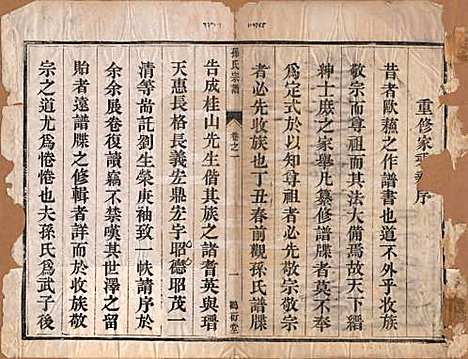 重修家乘序
昔者歐蘇之作譜書也不外乎收族
敬宗而尊祖而其法大備故天下縉
紳士庶之家舉凡纂修譜牒者莫不奉
為定式於以知尊祖者必先敬宗敬宗
者必先收族也丁丑春前觀孫氏譜牒
孫氏宗譜
卷之一
一
映雪堂
告成桂山先生偕其族之諸耆英與瑨
天惠長格長義宏鼎宏字昭德昭茂一
清等尚託劉生榮庚袖致一帙請序於
余余展卷復讀竊不禁嘆其世澤之留
貽者遠譜牒之修輯者詳而於收族敬
宗之道尤為惓惓也夫孫氏為武子後